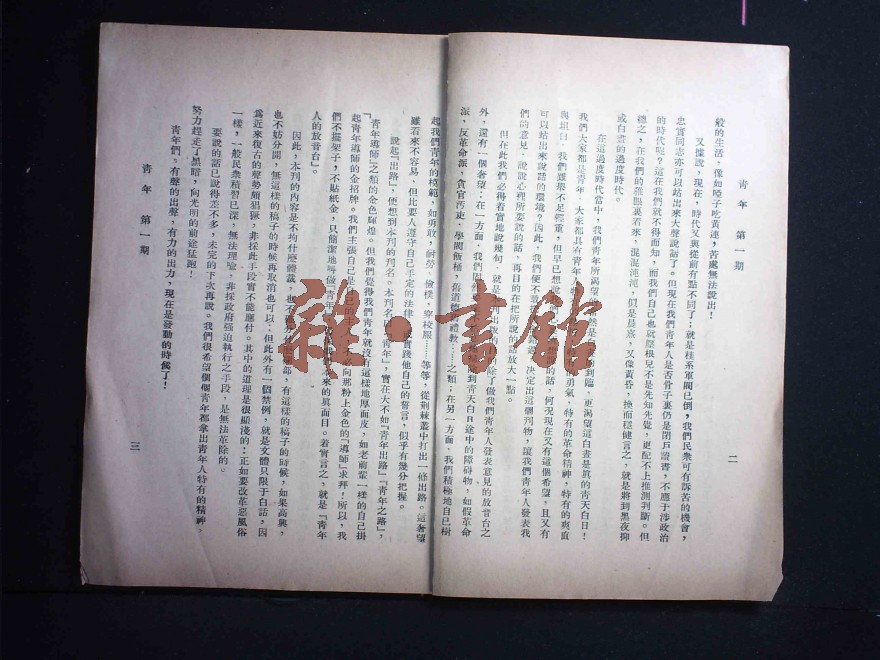 青年 第一期
二
般的生活，像如啞子吃黃連，苦處無法說出！
又據說，現在，時代又與從前有點不同了；就是桂系軍閥已倒，我們民衆可有訴苦的機會，
忠實同志亦可以站出來大聲說話了。但現在我們青年人是否骨子裏仍是閉戶讀書，不應于涉政治
的時代呢？這在我們就不得而知，而我們自己也就壓根兒不是先知先覺，更配不上推測判斷。但
總之，在我們的雅眼裏看來，混混沌沌，似是晨熹，又像黃昏，換而穩健言之，就是將到黑夜抑
或白晝的過度時代。
在這過度時代當中，我們青年所渴望
然是
到臨，更渴望這白晝是真的青天白日！
我們大家都是青年，大家都具有青年
勇氣，特有的革命精神，特有的爽直
與坦白。我們雖無足輕重，但早已想說
的話，何況現在又有這個希望，且又有
可以站出來說話的環境？因此，我們便不
決定出這個刊物，讓我們青年人發表我
們的意見，說說心理所要說的話，再目的在把所說的話放大一點。
但在此我們必得着實地說幾句，就是
刊出版的
除了做我們青年人發表意見的放音台之
外，還有一個奢望：在一方面，我們固然
到青天白日途中的障碍物，如假革命
派，反革命派，貪官汚吏，學閥飯桶，舊道德
禮教……之類；在另一方面，我們積極地自己樹
起我們青年的模範，如勇敢，耐勞，儉樣，穿梭服……等等，從荊棘叢中打出一條出路。這奢望
雖若來不容易，但比要人遵守自己手定的法律
實踐他自己的誓言，似乎有幾分把握。
說起「出路」，便想到本刊的刊名。本刊名
青年」，實在大不如「青年出路」「青年之路」，
「青年導師」之類的金色輝煌。但我們覺得我們青年就沒有這樣地厚面皮，如老前輩一樣的自己掛
起青年導師的金招牌。我們主張自己是自己的
不敢向那粉上金色的「導師」求拜！所以，我
們不擺架子，不貼紙金，只簡潔地呌做「青年」
來的真面目。若實言之，就是「青年
人的放音台」。
因此，本刊的內容是不拘什麼體裁，也不
分什麼
部，有這樣的稿子的時候，如果高興，
也不妨分開，無這樣的稿子的時候再取消也可以；但此外有一個禁例，就是文體只限于白話，因
為近來復古的聲勢頗猖獗，非採此手段實不能應付。其中的道理是很顯淺的：正如要改革惡風俗
一樣，一般民衆積習已深，無法理喻，非採政府强迫執行之手段，是無法革除的。
要說的話已說得差不多，未完的下次再說。我們很希望個個青年都拿出青年人特有的精神，
努力趕走了黑暗，向光明的前途猛跑！
青年們。有聲的出聲，有力的出力，現在是發動的時候了！
青年 第一期
三
雜·書館